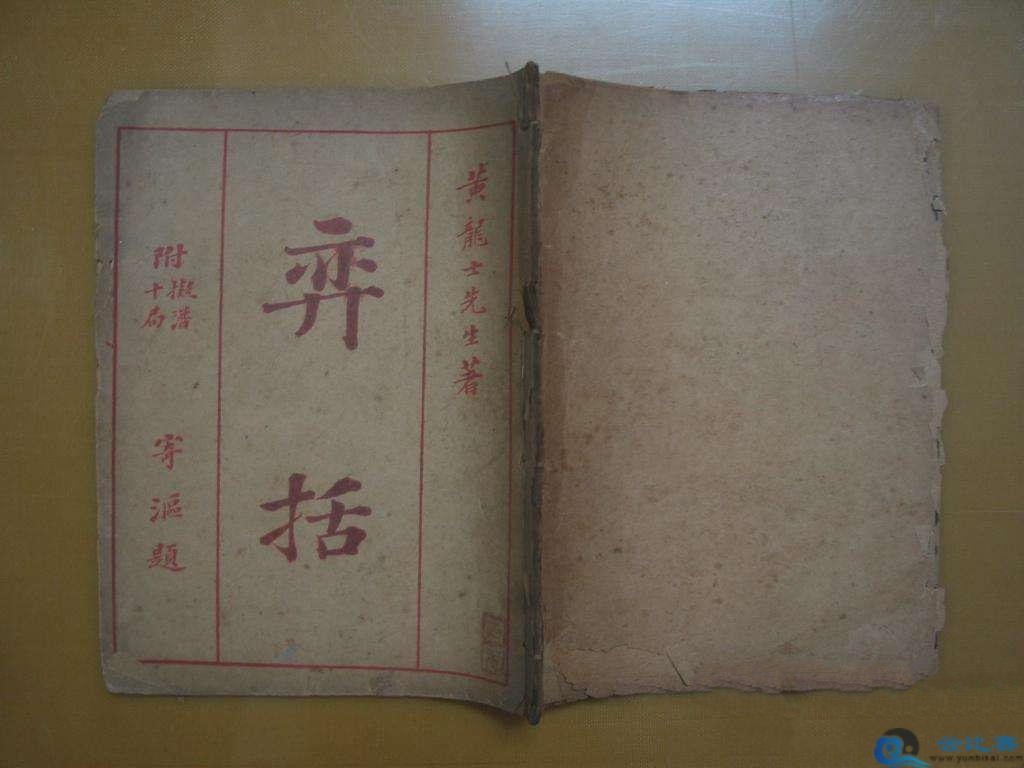 黃龍士先生著
弈括
附擬潘十局
寄漚題
云比赛
www.yunbisai.com